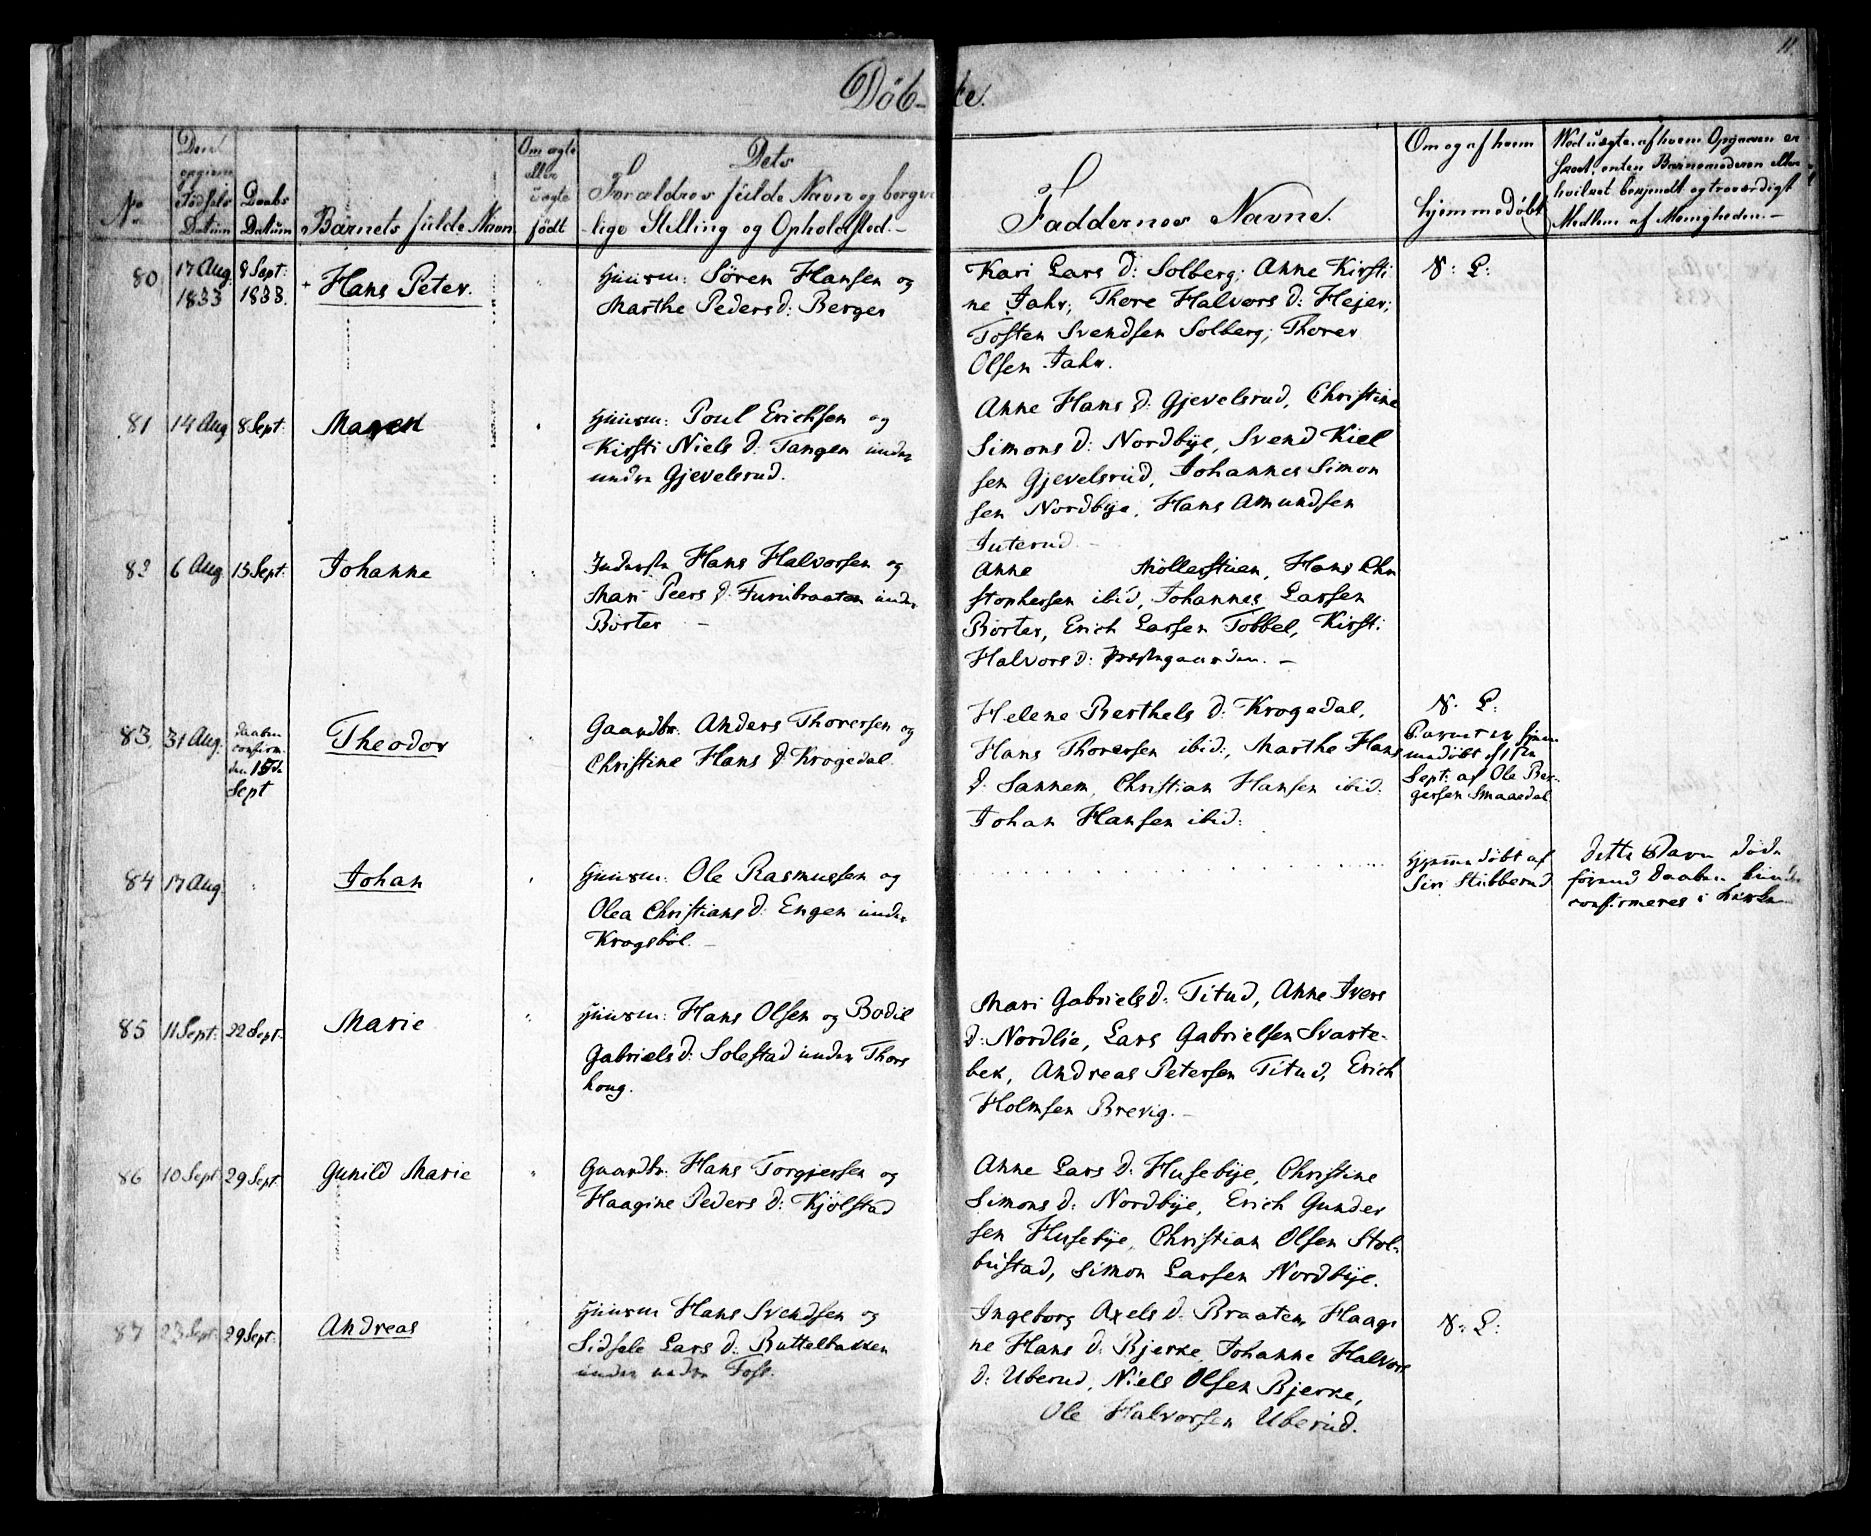 11.
Döb- te.
No
Den opgivne Födsels Datum
Daabs Datum
Barnets fulde Navn
Om ægte eller uægte född
Dets
Forældres fulde Navn og borger-
lige Stilling og Opholdsted.-
Faddernes Navne.
Om og af hvem
hjemmedöbt
Ved uægte, af hvem Opgaven er
skeet, enten Barnemoderen eller et
hvilket bekjendt og troværdigt
Medlem af Menigheden.-
80
17 Aug 1833
8 Sept: 1833.
Hans Peter.
Huusm: Sören Hansen og
Marthe Peders d: Berger
Kari Lars d: Solberg; Anne Kirsti
ne Jahr; Thore Halvors d: Hejer;
Tosten Svendsen Solberg; Thorer
Olsen Jahr.
N: L:
81
14 Aug
8 Sept:
Maren
Huusm: Poul Erichsen og
Kirsti Niels d: Tangen under
nedre Gjevelsrud.
Anne Hans d: Gjevelsrud, Christine
Simons d: Nordbye, Svend Kiel
sen Gjevelsrud, Johannes Simon
sen Nordbye, Hans Amundsen
Juterud. -
82
6 Aug
15 Sept:
Johanne
Inderste Hans Halvorsen og
Mari Peers d: Furubraaten under
Börter -
Anne Möllerstuen, Hans Chri
stophersen ibid, Johannes Larsen
Börter, Erich Larsen Tobbel, Kirsti
Halvors d: Præstegaarden. -
83.
31 Aug.
Daaben confirm. den 15de Sept
Theodor
Gaardbr: Anders Thorersen og
Christine Hans d: Krogedal
Helene Berthels d: Krogedal,
Hans Thorersen ibid:, Marthe Hans
d: Sannem, Christian Hansen ibid:
Johan Hansen ibid:
N: L:
Barnet er hjem
medöbt d. 1ste
Sept: af Ole Ber-
gersen Smaaedal
84
17 Aug
Johan
Huusm: Ole Rasmussen og
Olea Christians d: Engen under
Krogsböl. -
Hjemmedöbt af
Siri Stubberud
Dette Barn döde
förend Daaben kunde
confirmeres i Kirken
85
11 Sept:
22 Sept.
Marie
Huusm: Hans Olsen og Bodil
Gabriels d: Solestad under Thors
houg.
Mari Gabriels d: Titud, Anne Ivers
d: Nordlie, Lars Gabrielsen Svarte-
bek, Andreas Petersen Titud, Erich
Holmsen Brevig. -
86
10 Sept
29 Sept.
Gunild Marie
Gaardbr: Hans Torgjersen og
Haagine Peders d: Kjölstad
Anne Lars d: Husebye, Christine
Simons d: Nordbye, Erich Gunder
sen Husebye, Christian Olsen Stol-
bustad, Simon Larsen Nordbye.
87
23 Sept:
29 Sept:
Andreas
Huusm Hans Svendsen og
Sidsele Lars d: Buttelbakken
under nedre Foss.
Ingeborg Axels d: Braaten, Haagi
ne Hans d: Bjerke, Johanne Halvors
d: Uberud, Niels Olsen Bjerke,
Ole Halvorsen Uberud.
N: L: